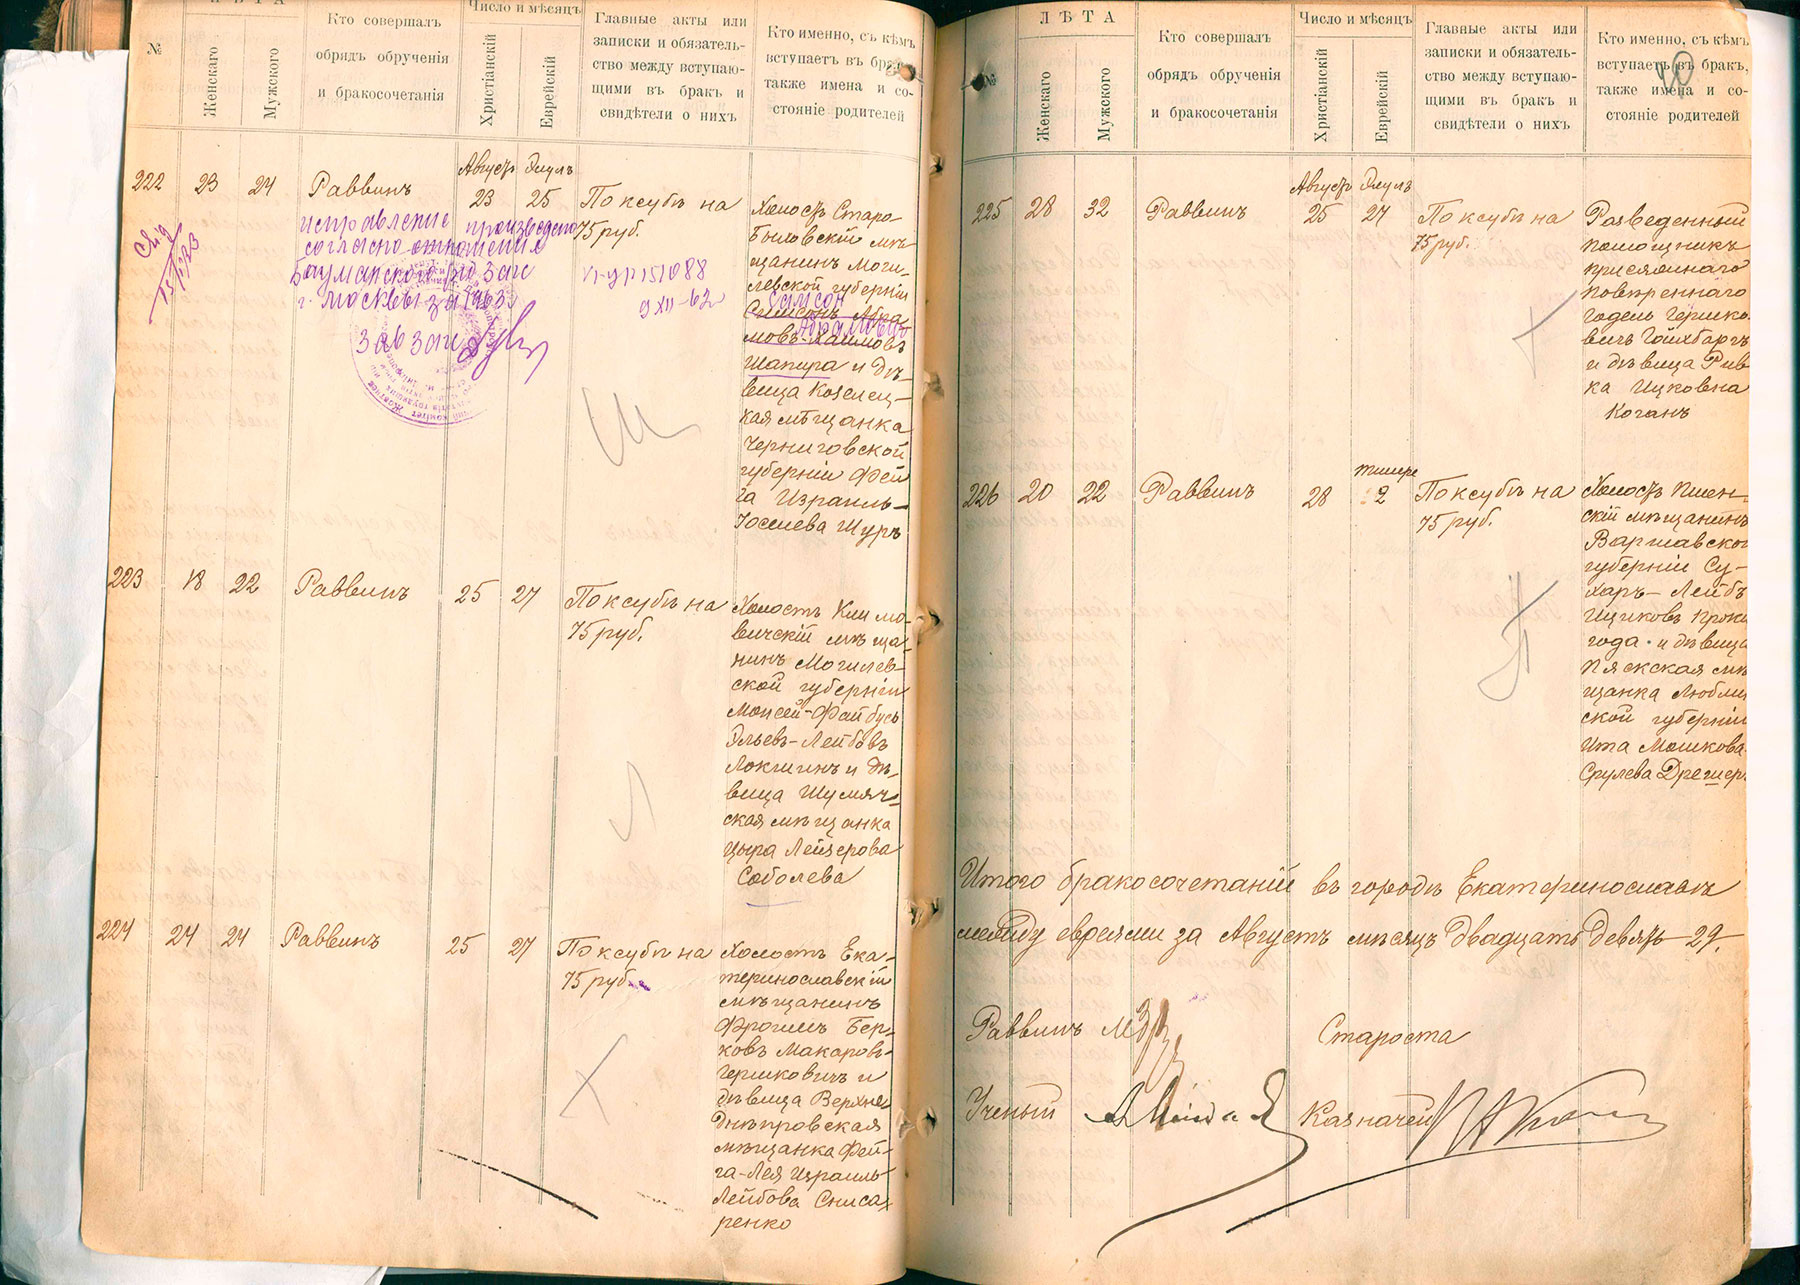 ЛѢТА
№
Женскаго
Мужского
Кто совершалъ
обрядъ обрученія
и бракосочетанія
Число и мѣсяцъ
Христіанскій
Еврейскій
Главные акты или
записки и обязатель-
ство между вступаю-
щими въ бракъ и
свидѣтели о нихъ
Кто именно, съ кѣмъ
вступаетъ въ бракъ,
также имена и со-
стояніе родителей
222
23
24
Раввинъ
Августъ
23
Элулъ
25
По ксубѣ на
75 руб.
Холостъ Старо
Быховскій мѣ
щанинъ Моги-
левской губерніи
Самсон
Самсонъ Абра
Абрамович
мовъ-Хаимовъ
Шапира и дѣ-
вица Козелец-
кая мѣщанка
Черниговской
губерніи Фей
га Израиль-
Іосіева Шуръ
исправление произведено
согласно отношения
Бауманского р/о загс
г. Москвы за 1963
Зав загс
15/I
9 XII-62
223
18
22
Раввинъ
25
27
По ксубѣ на
75 руб.
Холостъ Климо-
вичскій мѣща-
нинъ Могилев-
ской губерніи
Моисей-Файбусъ
Эльевъ-Лейбовъ
Локшинъ и дѣ-
вица Шумяч-
ская мѣщанка
Цыра Лейзерова
Соболева
Л
224
24
24
Раввинъ
25
27
По ксубѣ на
75 руб.
Холостъ Ека-
теринославскій
мѣщанинъ
Фроимъ Бер-
ковъ Макаровъ-
Гершковичъ и
дѣвица Верхне-
Днѣпровская
мѣщанка Фей-
га-Лея Израиль
Лейбова Снеса-
ренко
ЛѢТА
№
Женскаго
Мужского
Кто совершалъ
обрядъ обрученія
и бракосочетанія
Число и мѣсяцъ
Христіанскій
Еврейскій
Главные акты или
записки и обязатель-
ство между вступаю-
щими въ бракъ и
свидѣтели о нихъ
Кто именно, съ кѣмъ
вступаетъ въ бракъ,
также имена и со-
стояніе родителей
225
28
32
Раввинъ
Августъ
25
Элулъ
27
По ксубѣ на
75 руб.
Разведенный
помощникъ
присяжнаго
повѣреннаго
Годель Гершко-
вичъ Гойхбаргъ
и дѣвица Рив
ка Ицковна
Коганъ
226
20
22
Раввинъ
28
Тишре
2
По ксубѣ на
75 руб.
Холостъ Ппшен-
скій мѣщанинъ
Варшавской
губерніи Су-
харъ-Лейбъ
Ицковъ
и дѣвица
Пяскская мѣ
щанка Люблин
ской губерніи
Ита Мошкова
Срулева Дрешер
П
Итого бракосочетаній въ городѣ Екатеринославѣ
между евреями за Августъ мѣсяцъ двадцать девять 29.
Раввинъ
Староста
Ученый
Казначей